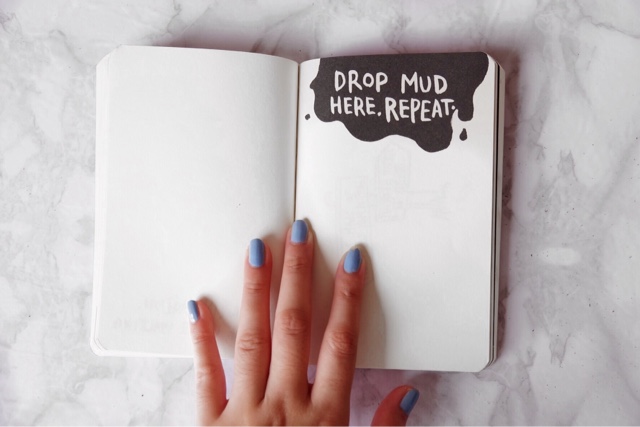 DROP MUD
HERE. REPEAT.